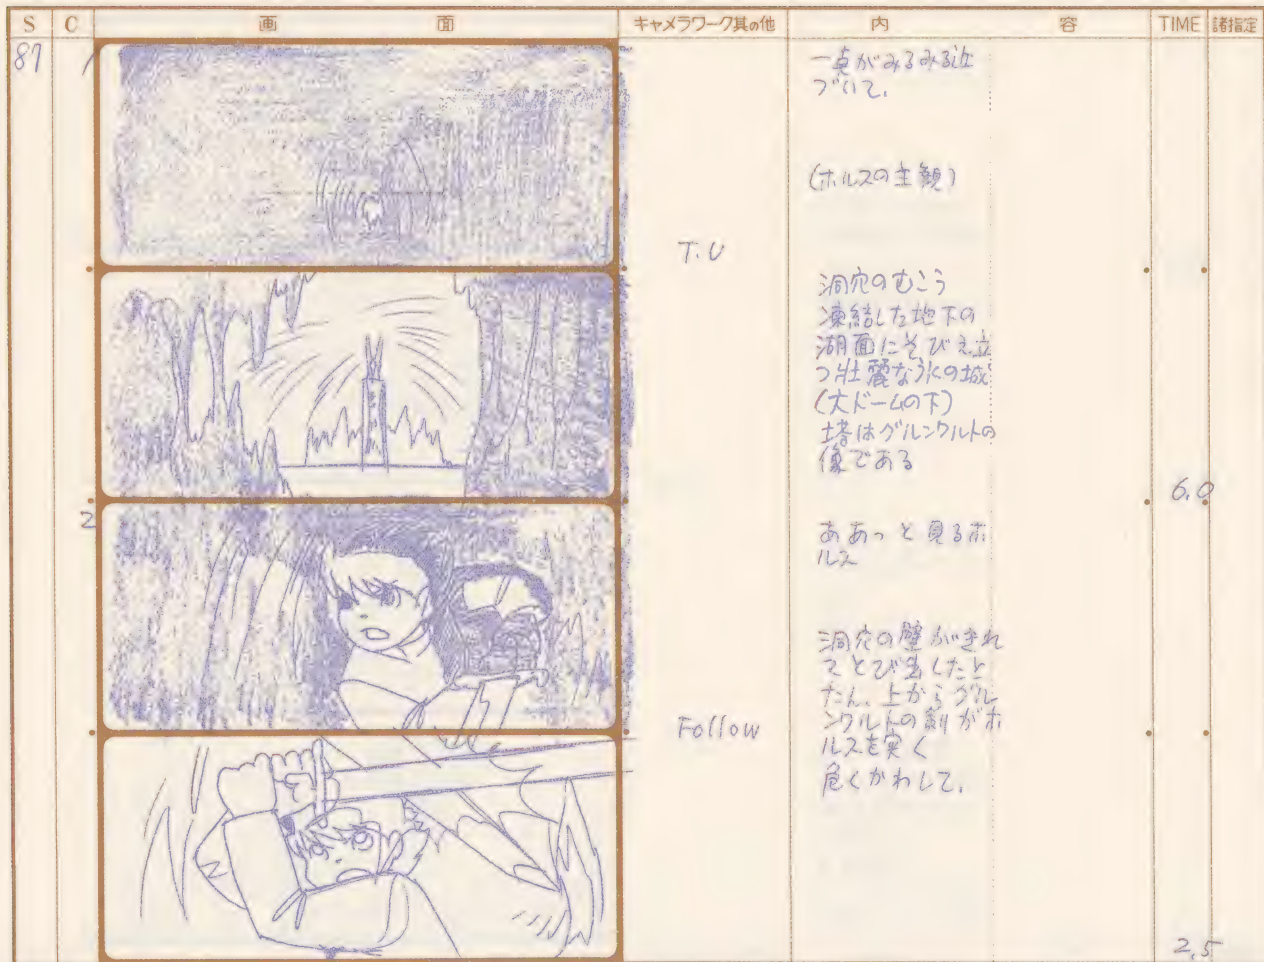 S C 画面 キャメラワーク其の他 内容 TIME 諸指定
87 1
一点がみるみる近
づいて、
(ホルスの主観)
T.U
洞穴のむこう
凍結した地下の
湖面にそびえ立
つ壮麗な氷の城
(大ドームの下)
塔はグルンワルトの
像である
6.0
2
ああっと見るホ
ルス
洞穴の壁がきれ
てとび出したと
たん、上からグル
ンワルトの剣がホ
ルスを突く
Follow
危くかわして、
2.5